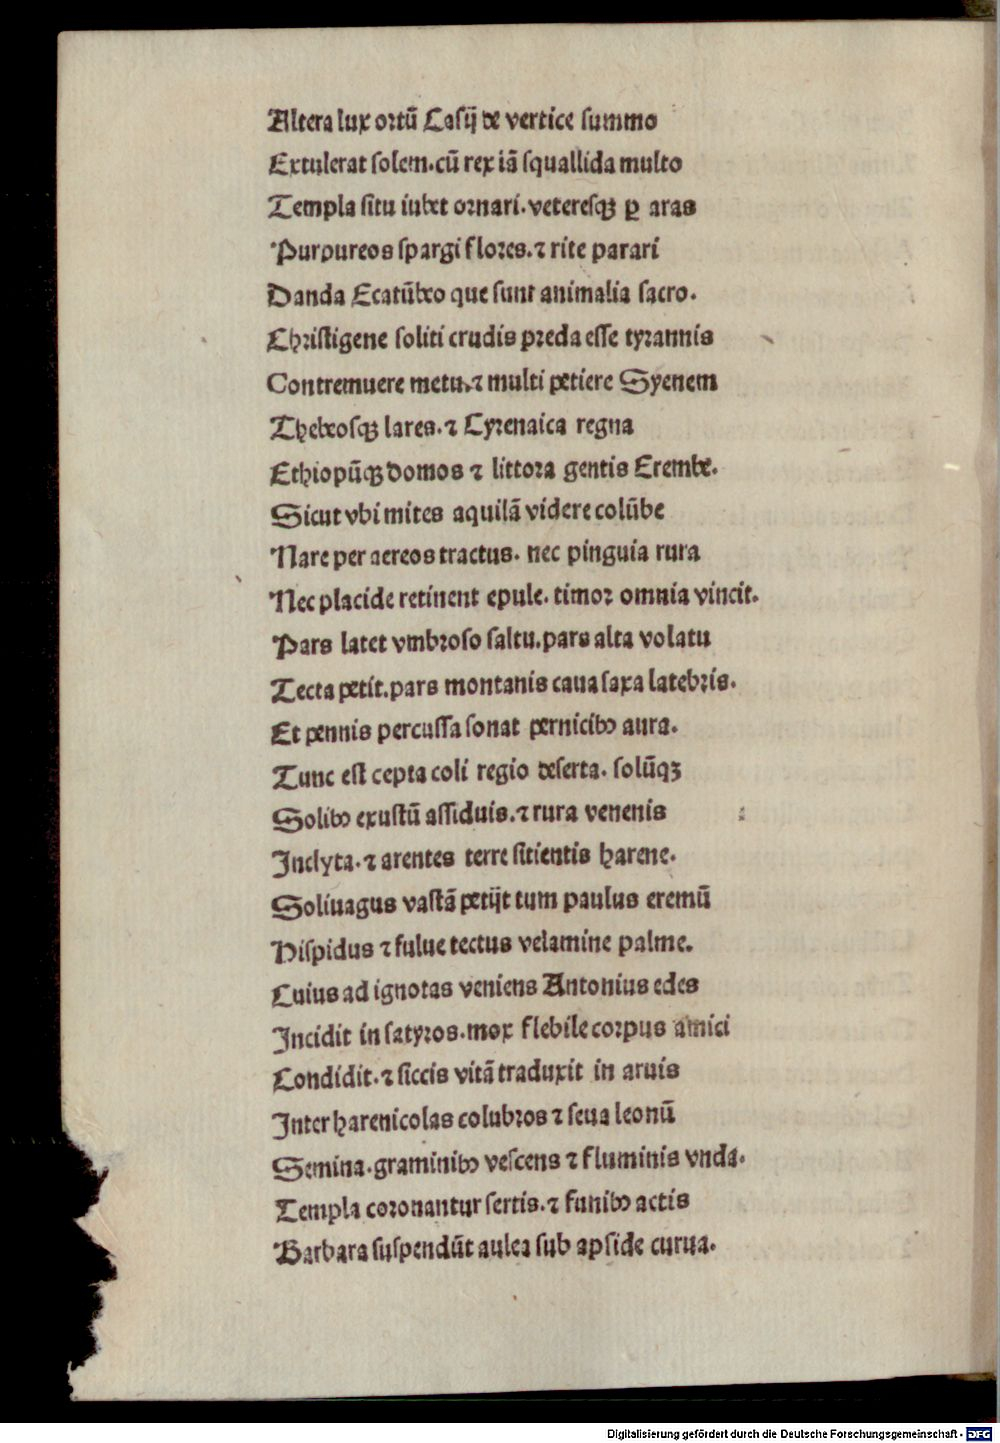 Altera lux ortū Casij de vertice summo
Extulerat solem. cū rex iā squallida multo
Templa situ iubet ornari. veteresqꝫ ꝑ aras
Purpureos spargi flores. ⁊ rite parari
Danda Ecatūbeo que sunt animalia sacro.
Christigene soliti crudis preda esse tyrannis
Contremuere metu. ⁊ multi petiere Syenem
Thebeosqꝫ lares. ⁊ Cyrenaica regna
Ethiopūqꝫ domos ⁊ littora gentis Erembe.
Sicut vbi mites aquilā videre colūbe
Nare per aereos tractus. nec pinguia rura
Nec placide retinent epule. timor omnia vincit.
Pars latet vmbroso saltu. pars alta volatu
Tecta petit. pars montanis caua saxa latebris.
Et pennis percussa sonat pernicibꝰ aura.
Tunc est cepta coli regio deserta. solūqꝫ
Solibꝰ exustū assiduis. ⁊ rura venenis
Inclyta. ⁊ arentes terre sitientis harene.
Soliuagus vastā petijt tum paulus eremū
Hispidus ⁊ fulue tectus velamine palme.
Cuius ad ignotas veniens Antonius edes
Incidit in satyros. mox flebile corpus amici
Condidit. ⁊ siccis vitā traduxit in aruis
Inter harenicolas colubros ⁊ seua leonū
Semina. graminibꝰ vescens ⁊ fluminis vnda.
Templa coronantur sertis. ⁊ funibꝰ actis
Barbara suspendūt aulea sub apside curua.
Digitalisierung gefördert durch die Deutsche Forschungsgemeinschaft - DFG